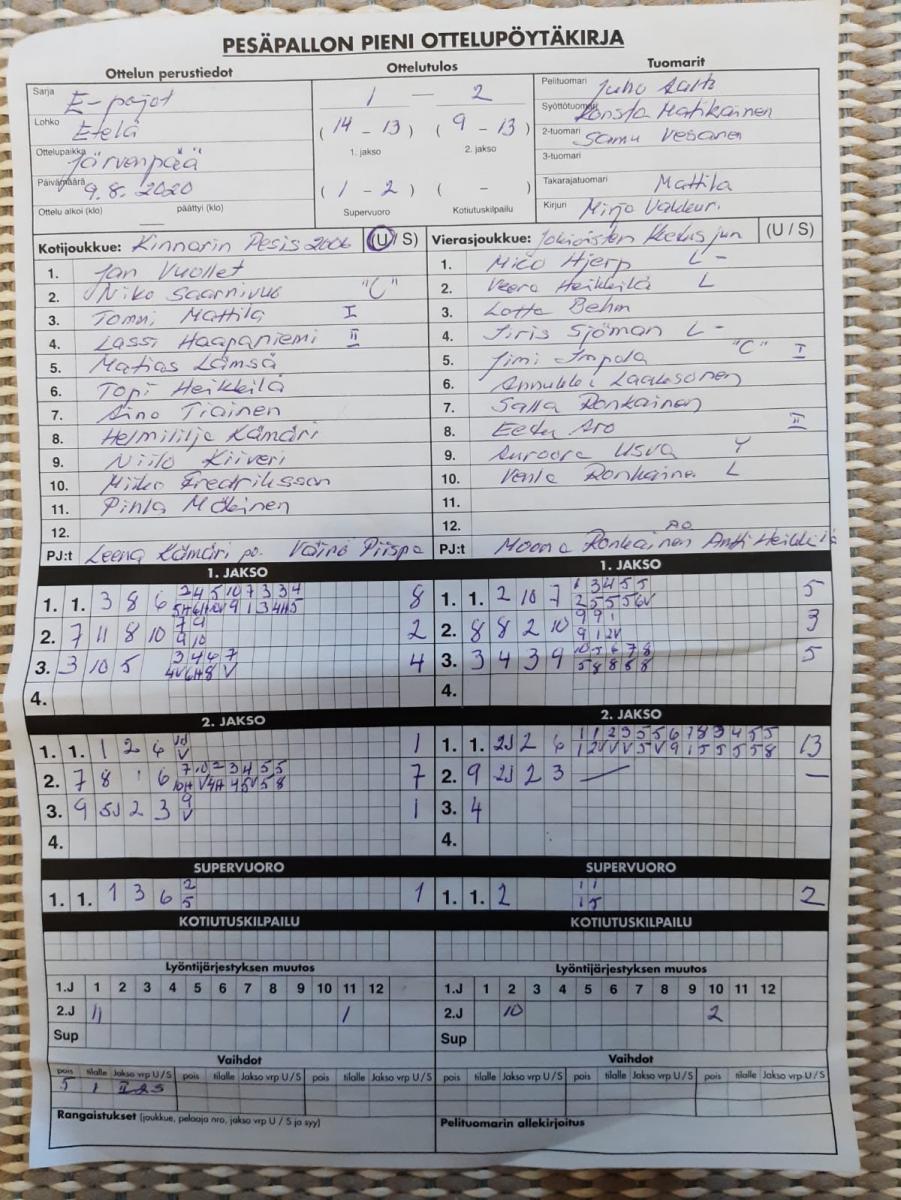 PESÄPALLON PIENI OTTELUPÖYTÄKIRJA
Ottelun perustiedot Ottelutulos Tuomarit
Sarja E-pojat 1 — 2 Pelituomari Juho Aalto
Lohko Etelä (14 - 13) (9 - 13) Syöttötuomari Konsta Matikainen
Ottelupaikka Järvenpää 1. jakso 2. jakso 2-tuomari Samu Vesanen
3-tuomari
Päivämäärä 9.8.2020 (1 - 2) ( - ) Takarajatuomari Mattila
Ottelu alkoi (klo) päättyi (klo) Supervuoro Kotiutuskilpailu Kirjuri Mirja
Kotijoukkue: Kinnarin Pesis 2006 (U / S) Vierasjoukkue: (U / S)
1. Jan Vuollet 1. Mico Hjerp L -
2. Niko Saarnivuo "C" 2. Veera Heikkilä L
3. Tommi Mattila I 3. Lotta Behm
4. Lassi Haapaniemi II 4. Iiris Sjöman L -
5. Matias Lämsä 5. Jimi Impola "C" I
6. Topi Heikkilä 6. Laaksonen
7. Aino Tiainen 7. Salla Ronkainen
8. Helmililja Kämäri 8. Eetu Aro II
9. Niilo Kiiveri 9. Auroora Usva Y
10. Miiko Fredriksson 10. Venla Ronkainen L
11. Pihla Mäkinen 11.
12. 12.
PJ:t Leena Kämäri po. Väinö Piispa PJ:t Moona Ronkainen Antti Heikkilä
1. JAKSO 1. JAKSO
1. 1. 3 8 6 8 1. 1. 2 10 7 1 3 4 5 5 5
2. 7 11 8 10 7 9 9 10 2 2. 8 8 2 10 9 9 1 9 1 2V 3
3. 3 10 5 3 4 6 7 4 3. 3 4 3 9 10 5 6 7 8 5 8 8 5 8 5
4. 4.
2. JAKSO 2. JAKSO
1. 1. 1 2 6 1 1. 1. 2J 2 6 13
2. 7 8 1 6 7 10 2 3 4 5 5 7 2. 9 2J 2 3 — —
3. 9 5J 2 3 9 V 1 3. 4
4. 4.
SUPERVUORO SUPERVUORO
1. 1. 1 3 6 2 5 1 1. 1. 2 1 1 1 5 2
KOTIUTUSKILPAILU KOTIUTUSKILPAILU
Lyöntijärjestyksen muutos Lyöntijärjestyksen muutos
1.J 1 2 3 4 5 6 7 8 9 10 11 12 1.J 1 2 3 4 5 6 7 8 9 10 11 12
2.J 11 1 2.J 10 2
Sup Sup
Vaihdot Vaihdot
pois tilalle Jakso vrp U/S pois tilalle Jakso vrp U/S pois tilalle Jakso vrp U/S pois tilalle Jakso vrp U/S pois tilalle Jakso vrp U/S pois tilalle Jakso vrp U/S
5 1 II 2 S
Rangaistukset (joukkue, pelaaja nro, jakso vrp U / S ja syy) Pelituomarin allekirjoitus